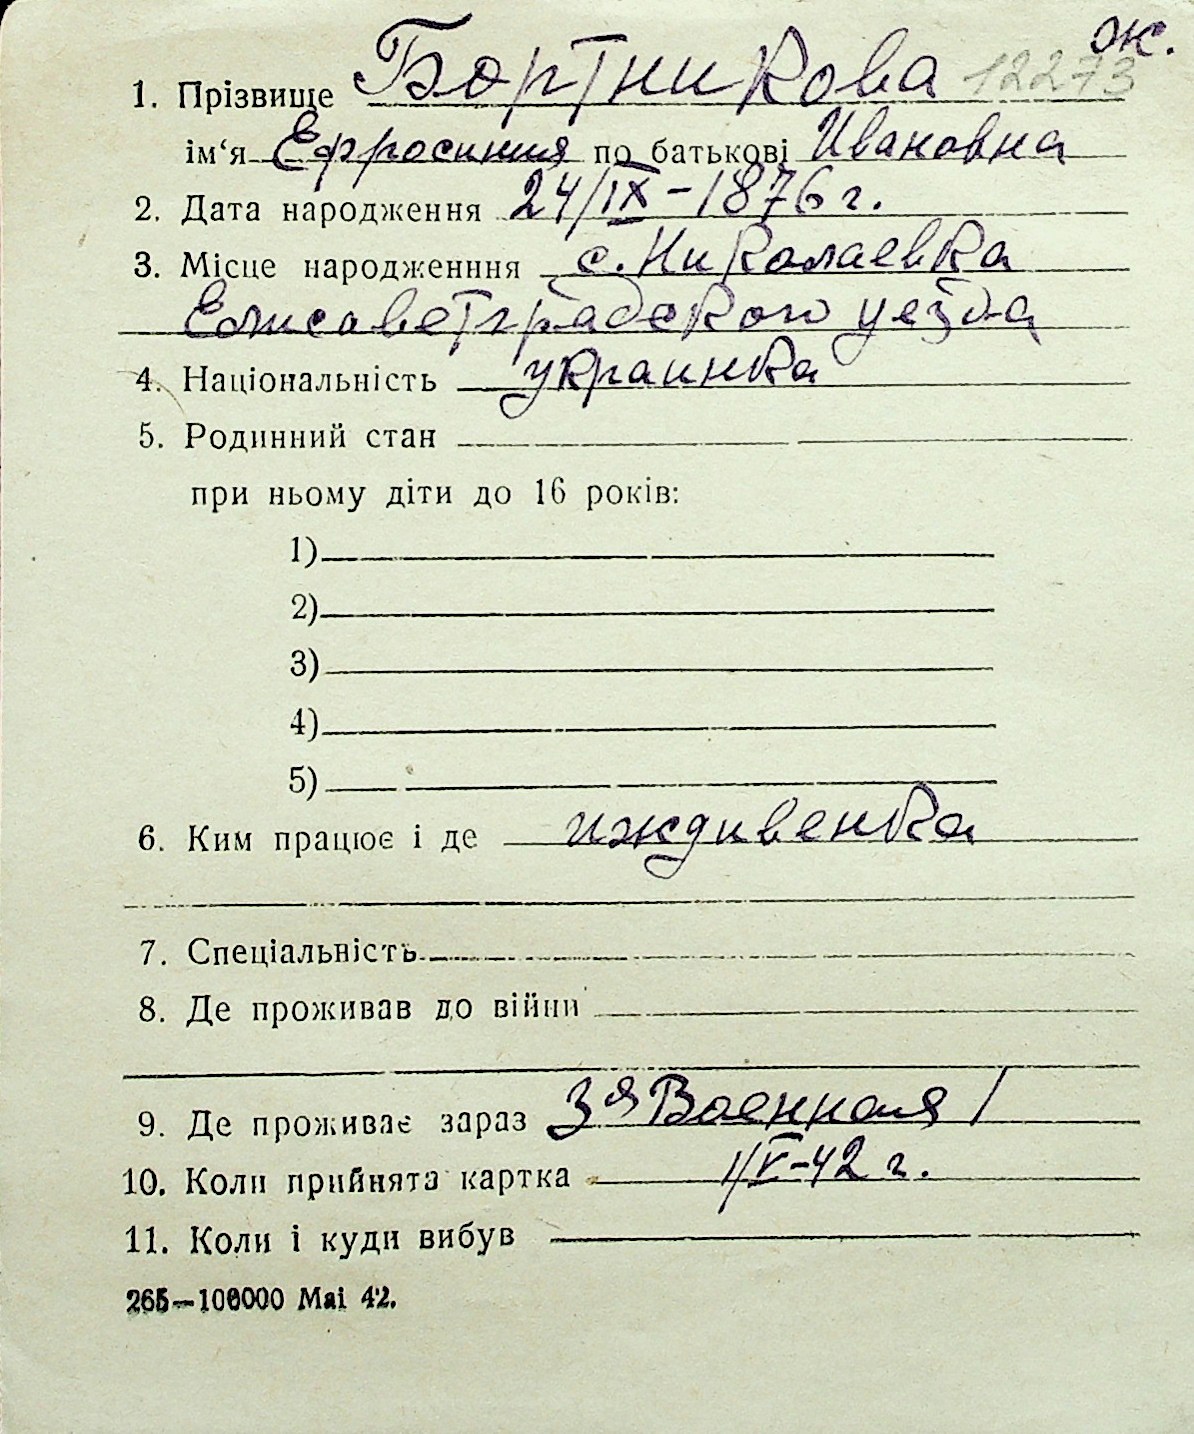 ж.
1. Прізвище Бортникова 12273
ім‘я Ефросиния по батькові Ивановна
2. Дата народження 24/IX-1876 г.
3. Місце народженння с. Николаевка
Елисаветградского уезда
4. Національність украинка
5. Родинний стан
при ньому діти до 16 років:
1)
2)
3)
4)
5)
6. Ким працює і де иждивенка
7. Спеціальність
8. Де проживав до війни
9. Де проживає зараз 3я Военная /
10. Коли прийнята картка 1/V-42 г.
11. Коли і куди вибув
265—100000 Mai 42.